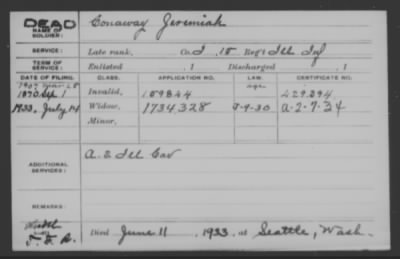 DEAD
NAME OF SOLDIER: Conaway, Jeremiah
SERVICE: Late rank, Co. I, 15 Reg't Ill Inf
TERM OF SERVICE: Enlisted , 1 Discharged , 1
DATE OF FILING. CLASS. APPLICATION NO. LAW. CERTIFICATE NO.
1907 Mar 25 age
1870 Sep 1 Invalid, 159844
1933, July 14 Widow, 1734,328 A-2-7-34
Minor,
ADDITIONAL SERVICES: A. 2 Ill Cav
REMARKS:
Died June 11, 1933, at Seattle, Wash.